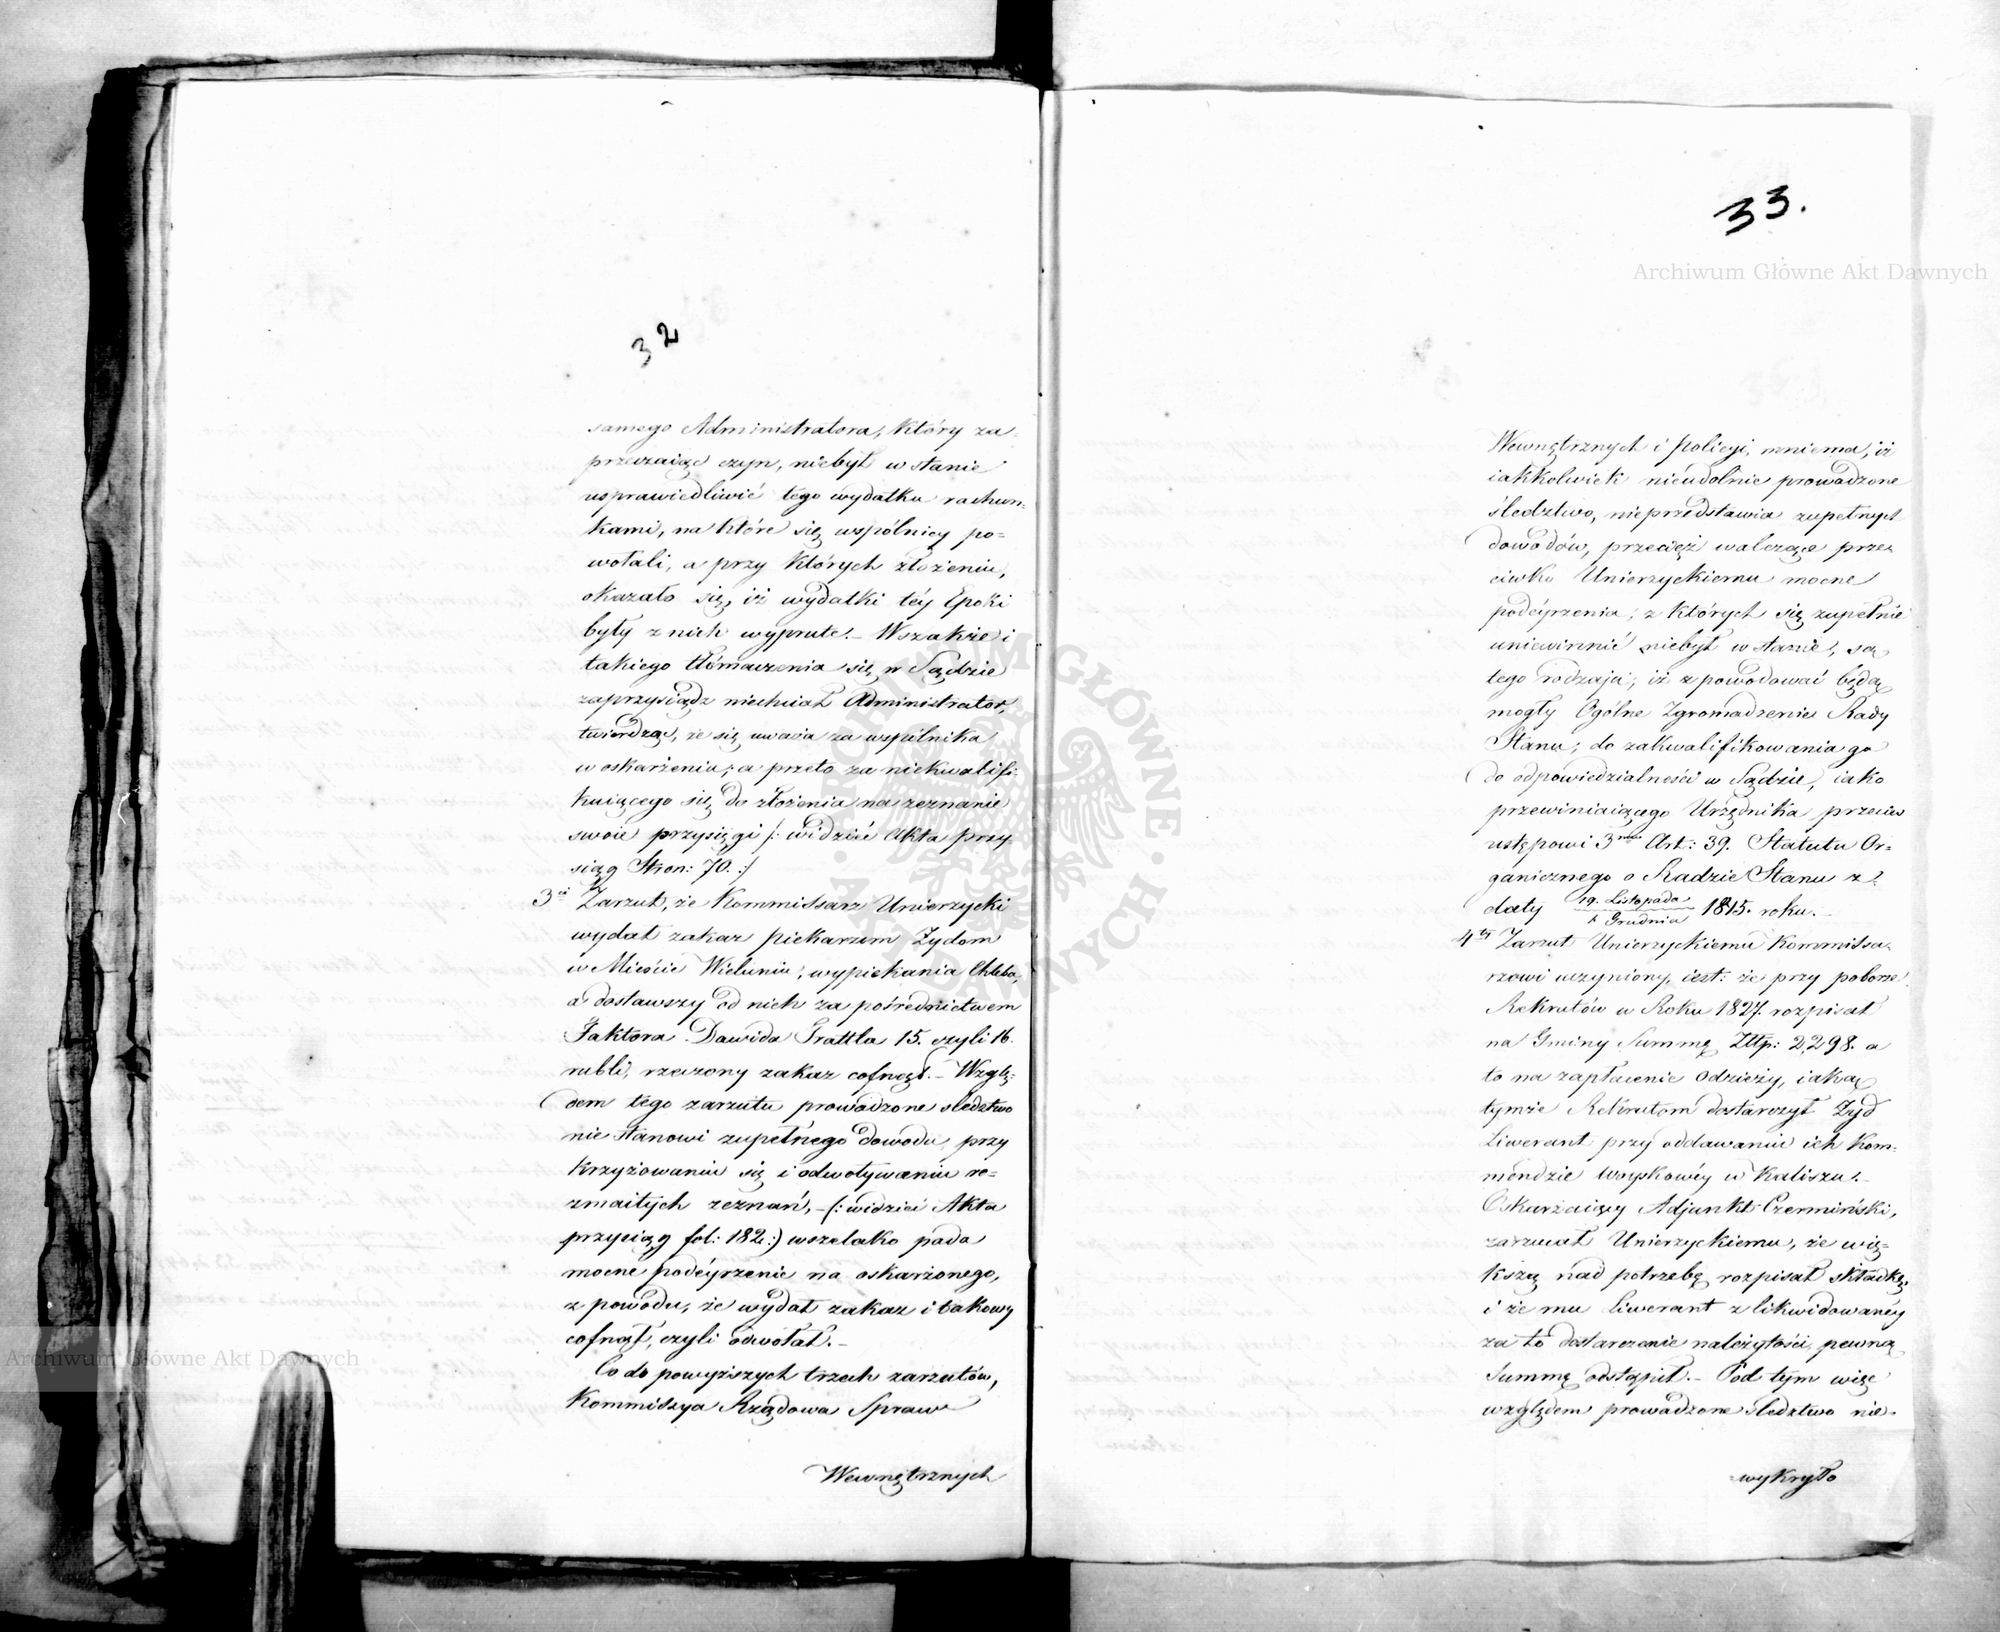 32
samego Administratora, który za-
przeczaiąc czyn, niebył w stanie
usprawiedliwić tego wydatku rachun-
kami, na które się wspólnicy po-
wołali, a przy których złożeniu,
okazało się, iż wydatki téy Epoki
były z nich wyprute. – Wszakże i
takiego tłómaczenia się w Sądzie
zaprzysiądz niechciał Administrator,
twierdząc, że się uważa za wspólnika
w oskarżeniu, a przeto za niekwalifi-
kuiącego się do złożenia na zeznanie
swoie przysięgi /: widzieć Akta przy-
siąg Stron: 70. :/
3ci Zarzut, że Kommissarz Unierzycki
wydał zakaz piekarzom Żydom
w Mieście Wieluniu, wypiekania Chleba,
a dostawszy od nich za pośrednictwem
Faktora Dawida Prattla 15. czyli 16.
rubli, rzeczony zakaz cofnął. – Wzglę-
dem tego zarzutu prowadzone sledztwo
nie stanowi zupełnego dowodu przy
krzyżowaniu się i odwoływaniu ro-
zmaitych zeznań, – (: widzieć Akta
przysiąg fol: 182 :) wszelako pada
mocne podéyrzenie na oskarżonego,
z powodu, że wydał zakaz i takowy
cofnął, czyli odwołał. –
Co do powyższych trzech zarzutów,
Kommissya Rządowa Spraw
Wewnętrznych
33.
Archiwum Główne Akt Dawnych
Wewnętrznych i Policyi, mniema, iż
iakkolwiek nieudolnie prowadzone
śledztwo, nieprzedstawia zupełnych
dowodów, przecięż walczące prze-
ciwko Unierzyckiemu mocne
podéyrzenia, z których się zupełnie
uniewinnić niebył w stanie, są
tego rodzaju, iż spowodować będą
mogły Ogólne Zgromadzenie Rady
Stanu, do zakwalifikowania go
do odpowiedzialności w Sądzie, iako
przewiniaiącego Urzędnika przeciw
ustępowi 3mu Art: 39. Statutu Or-
ganicznego o Radzie Stanu z
daty 19. Listopada / 1 Grudnia 1815. roku. –
4ty Zarzut Unierzyckiemu Kommissa-
rzowi uczyniony, iest: że przy poborze
Rekrutów w Roku 1827. rozpisał
na Gminy Summę Złtp: 2,298. a
to na zapłacenie odzieży, iaką
tymże Rekrutom dostarczył Żyd
Liwerant przy oddawaniu ich Kom-
mendzie Woyskowéy w Kaliszu. –
Oskarżaiący Adjunkt Czermiński,
zarzucał Unierzyckiemu, że wię-
kszą nad potrzebę rozpisał składkę,
i że mu Liwerant z likwidowanéy
za to dostarczenie należytości, pewną
Summę odstąpił. – Pod tym więc
względem prowadzone śledztwo nie-
wykryło
Archiwum Główne Akt Dawnych
ARCHIWUM GŁÓWNE AKT DAWNYCH